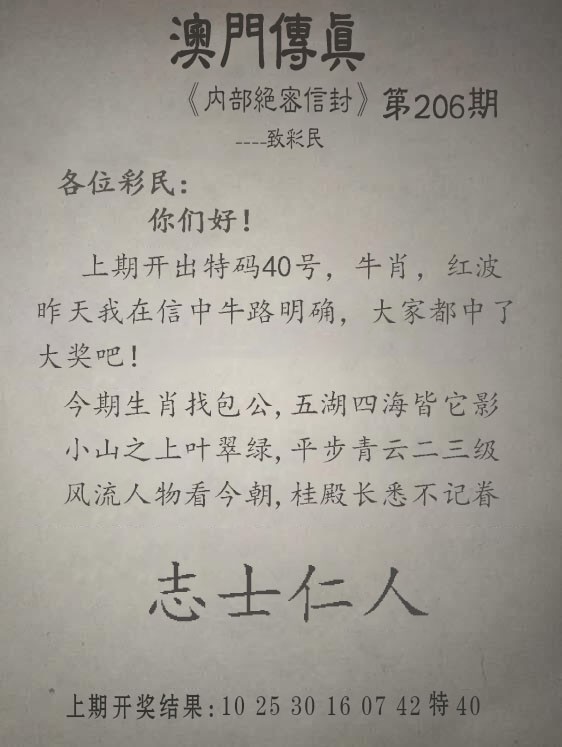 澳門傳眞
《内部絕密信封》第206期
----致彩民
各位彩民：
你们好！
上期开出特码40号，牛肖，红波
昨天我在信中牛路明确，大家都中了
大奖吧！
今期生肖找包公,五湖四海皆它影
小山之上叶翠绿,平步青云二三级
风流人物看今朝,桂殿长悉不记眷
志士仁人
上期开奖结果:10 25 30 16 07 42 特 40